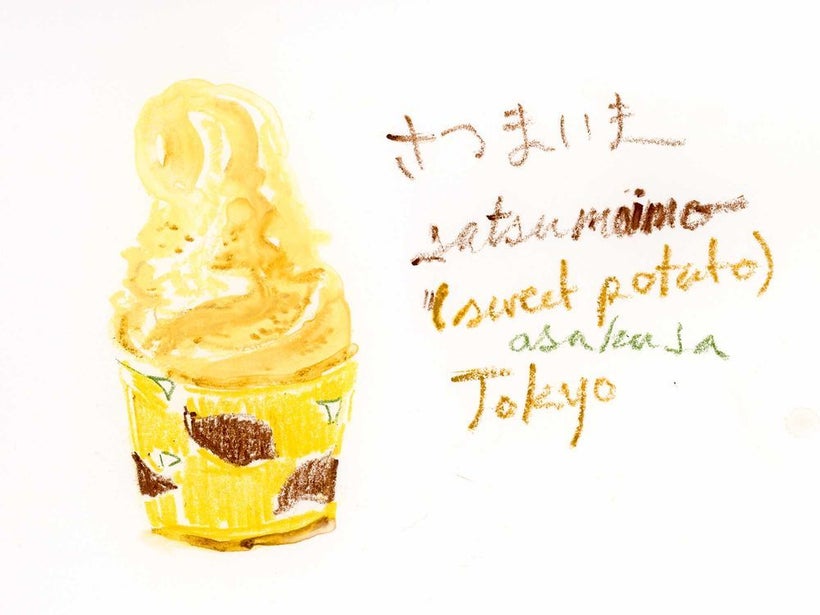 さつまいも
satsumaimo
(sweet potato)
asakusa
Tokyo